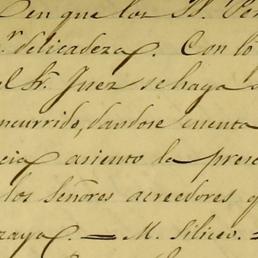 en que los SS. Per
r delicadeza. Con lo
el Sr. Juez se haya
ncurrido, dandose cuenta
cia asiento la prese
los Señores acreedores q
zaya. = M. Siliceo. =